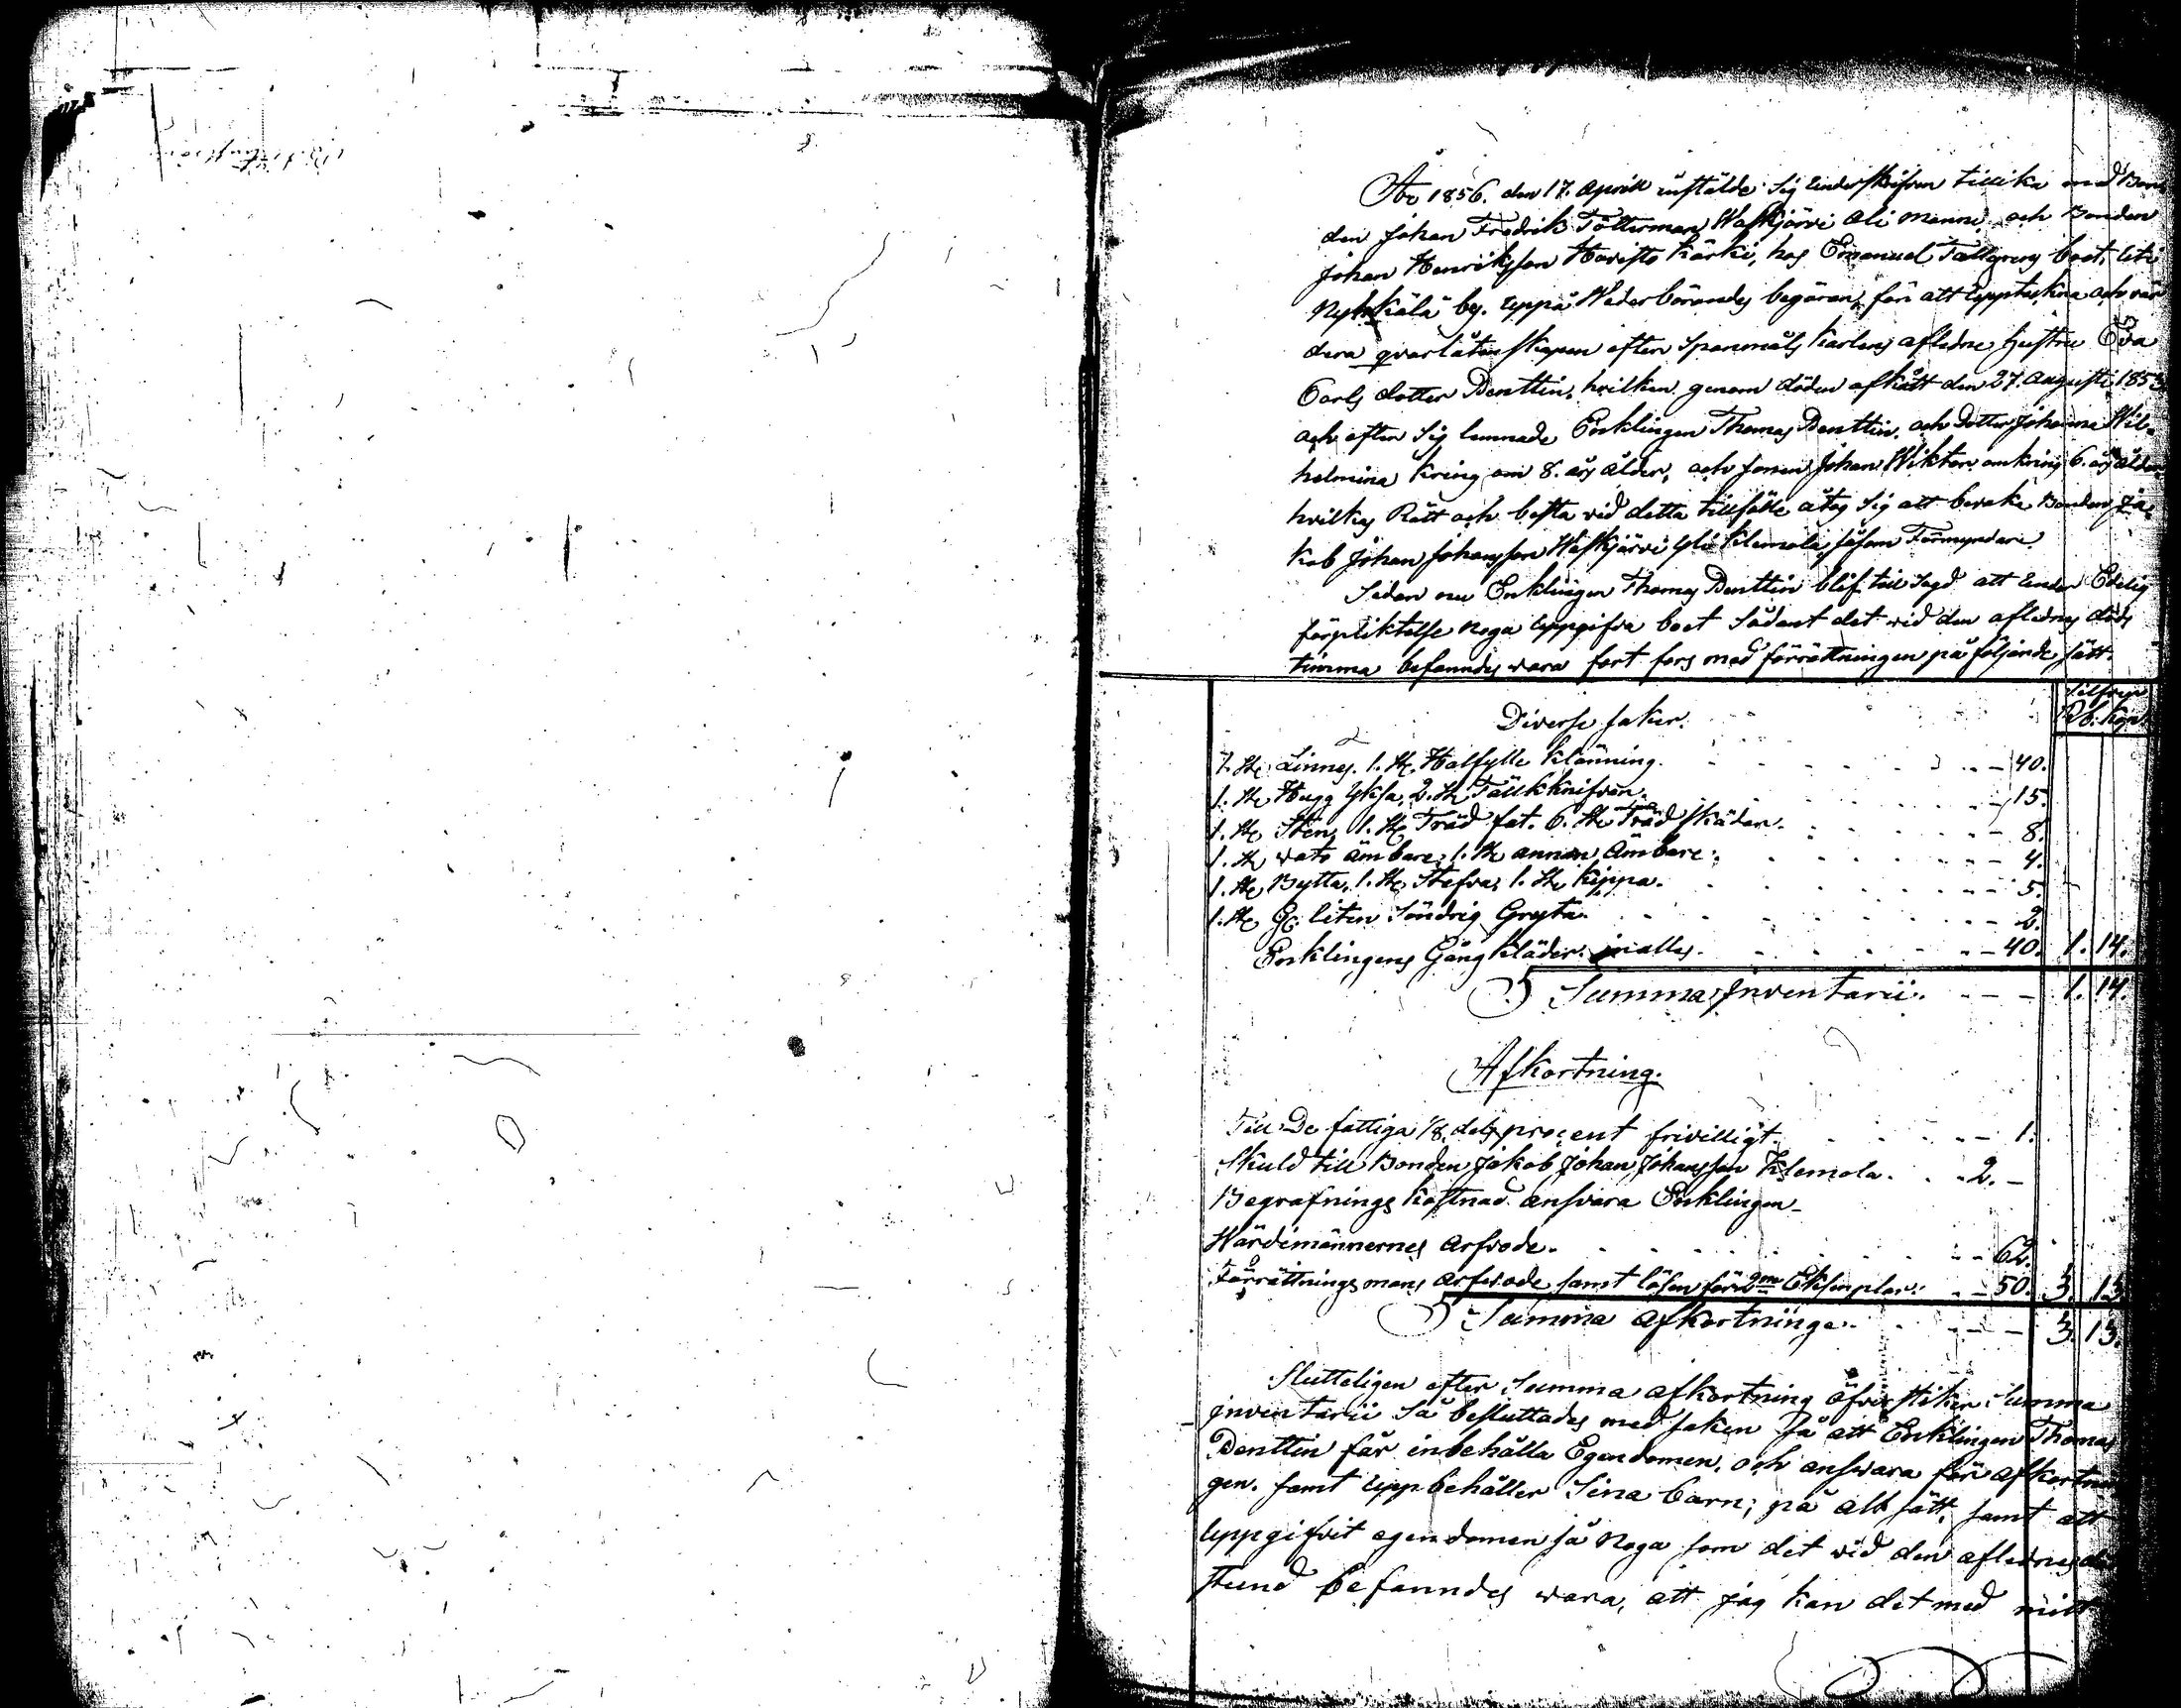 År 1856. den 17. April instälde sig Underskrifven tillika med Bon
den Johan Fredrik Totterman Waskjärvi Ali Manni och Bonden
Johan Henriksson Haviste Kärki, hos Emanuel Tallgrens boet, uti
Nykälä by. uppå Wederbörandes begäran, för att upptekna och vär
dera qvarlåtenskapen efter Spanmåls Karlens aflidne hustru Eva
Carls dotter Denttin, hvilken genom döden afgått den 27. Augusti 1853
och efter sig lemnade Enklingen Thomas Denttin. och Dotter Johanna Wil-
helmina kring om 8. års ålder, och sonen Johan Wiktor omkring 6. års ålder,
hvilkas Rätt och bästa vid detta tillfälle åtog sig att bevaka Bonden Ja-
kob Johan Johansson Waskjärvi Yli Klemola, såsom Förmyndare.
Sedan nu Enklingen Thomas Denttin blif. till sagd att under Edelig
förpliktelse noga uppgifva boet sådant det vid den aflednes döds
timma befanndes vara fort fors med förrättningen på följande sätt.
Silfver
Rb. Kop.
Diverse saker.
7. St. Linnes. 1. St. Halfylle Klänning. 40.
1. St. Hugg Yksa, 2. St. Tälikknifvar. 15.
1. St. Sten, 1. St. Träd fat. 6. St. Träd skädar. 8.
1. St. vato ämbare, 1. St. annan Ämbare. 4.
1. St. Bytta, 1. St. Stefva, 1. St. Kippa. 5.
1. St. liten Söndrig Gryta. 2.
Enklingens Gång Kläder. inalles. 40. 1. 14.
Summa Inventarii. 1. 14.
Afkortning.
Till De fattiga 1/8. dels procent frivilligt. 1.
Skuld till Bonden Jakob Johan Johansson Klemola. 2. -
Begrafnings kostnad ansvara Enklingen -
Wärdimännernes Arfvode. 62.
Förrättnings mans arfvode samt lösen för 2ne Eksemplar. 50. 3. 13.
Summa afkortninge. 3. 13.
Slutteligen efter Summa afkortning öfverstiker Summa
inventarii så besluttades med saken så att Enklingen Thomas
Denttin får inbehålla Egendomen, och ansvara för afkortnin
gen. samt uppbehåller Sina barn; på alt sätt, samt att
uppgifvit egendomen så noga som det vid den aflednes
stund befanndes vara, att jag kan det med mitt